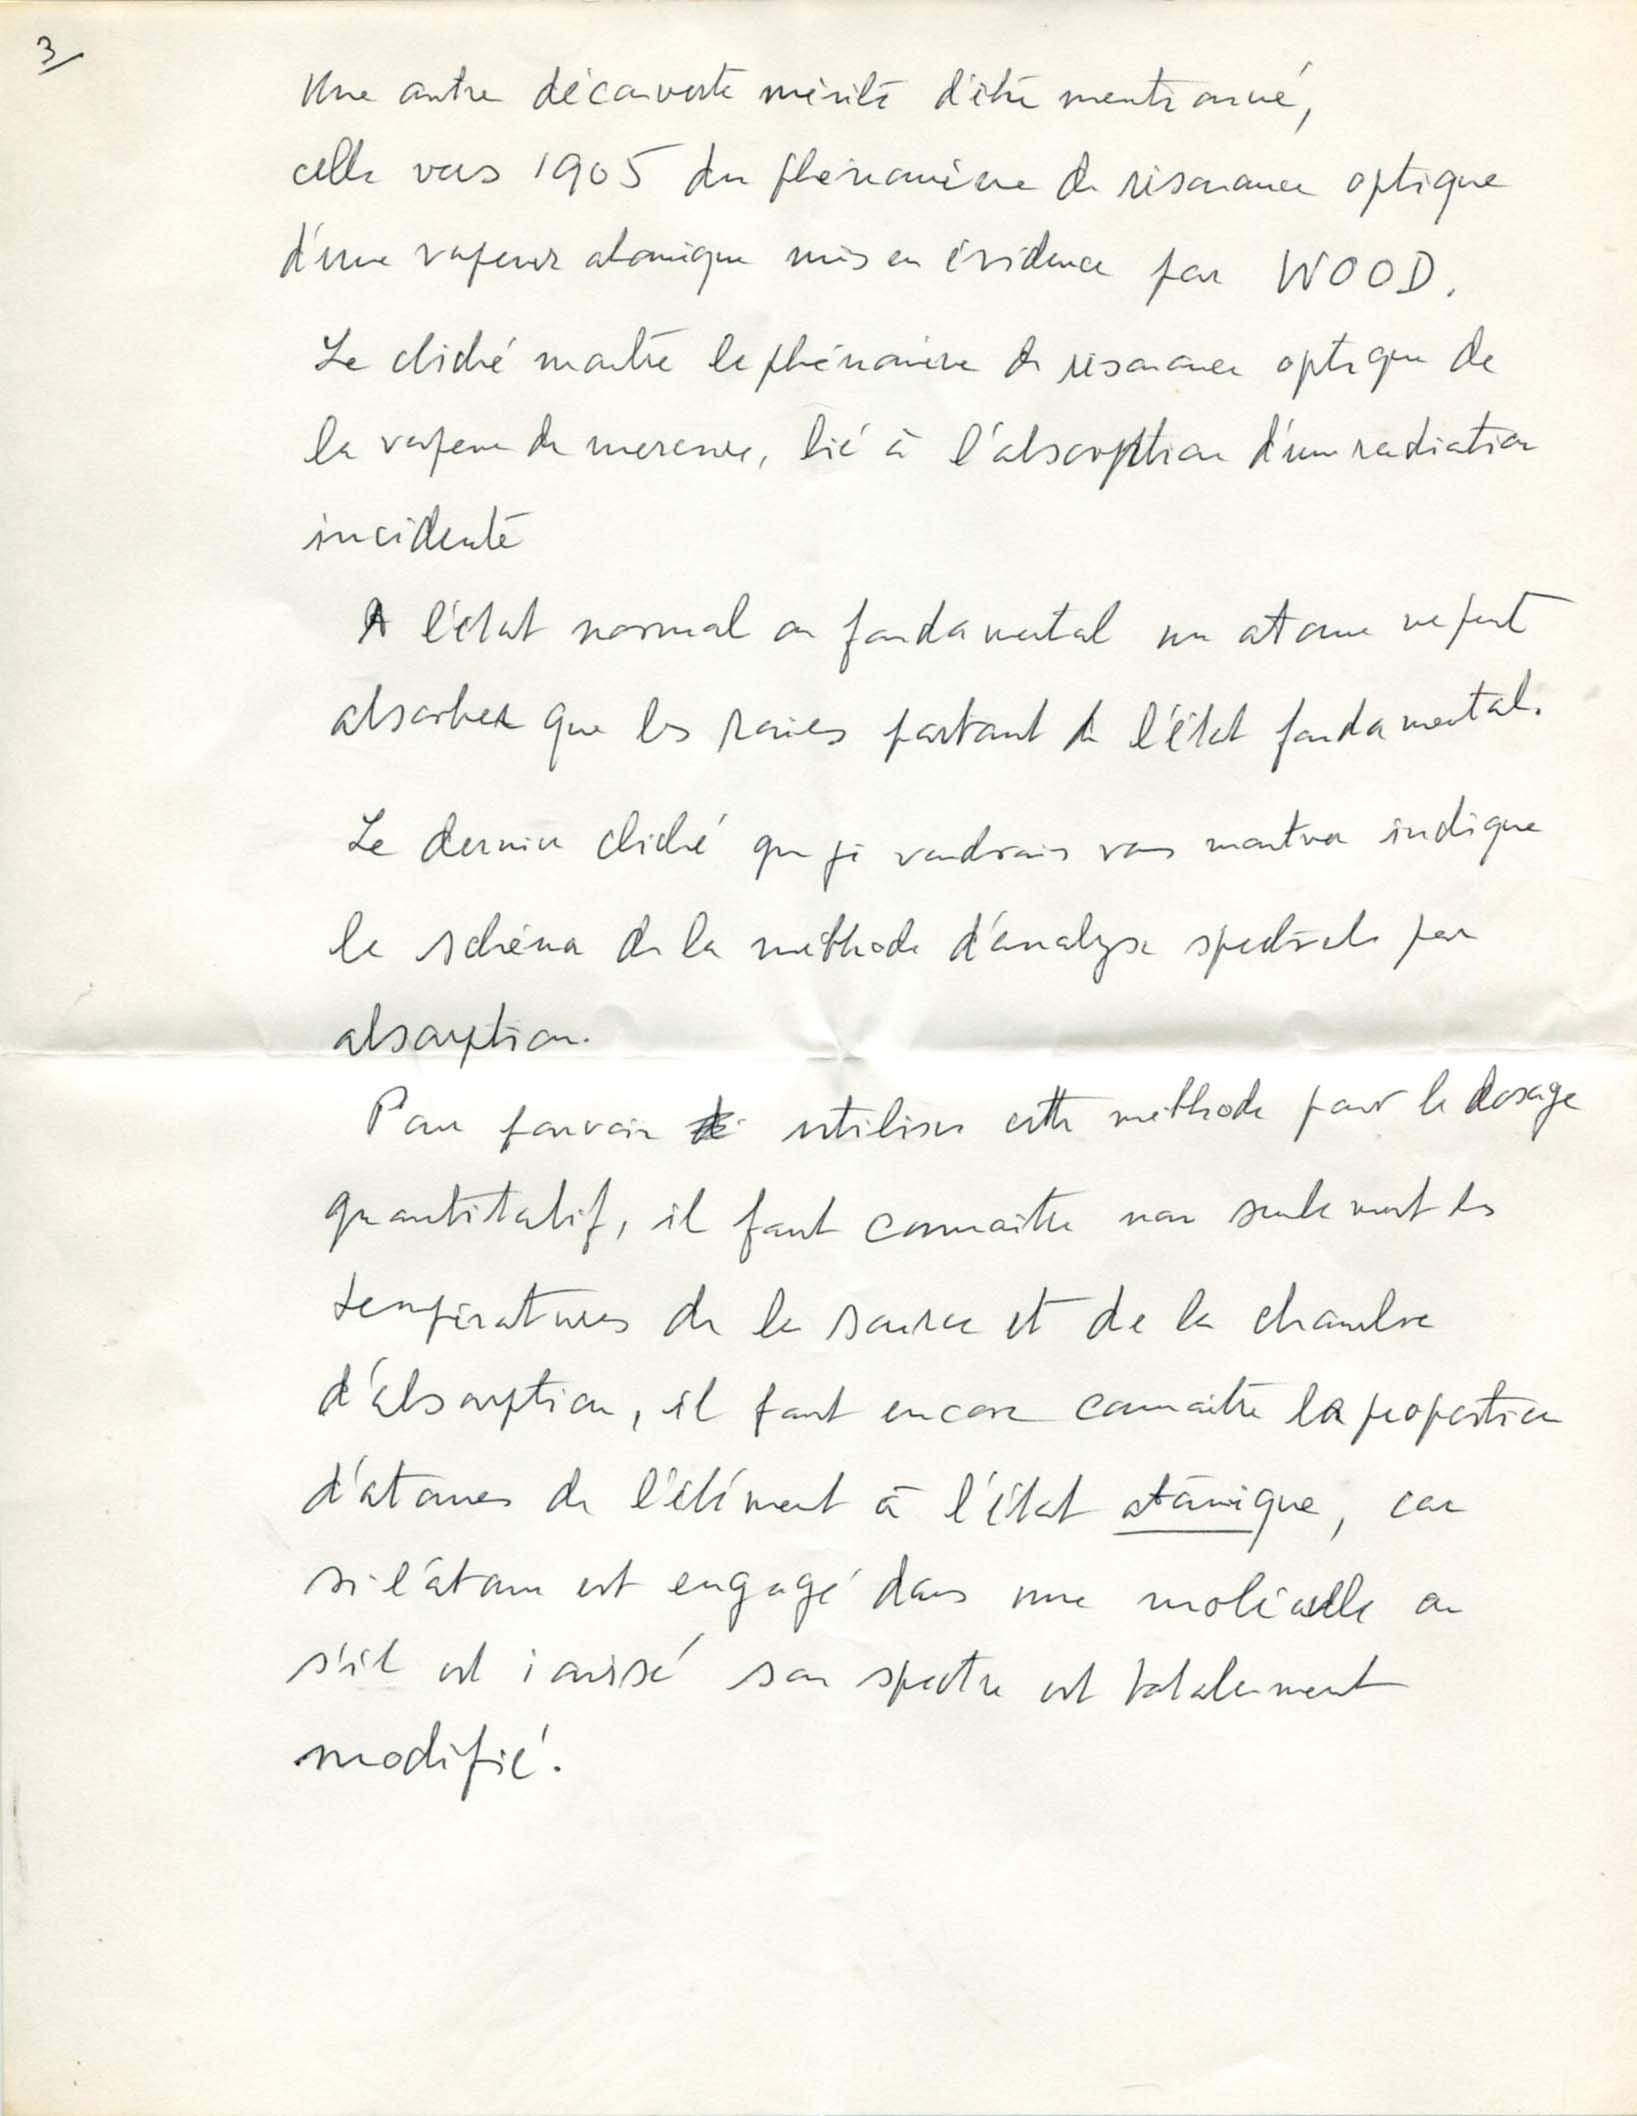 3/
Une autre découverte mérite d'être mentionné,
celle vers 1905 du phénomène de résonance optique
d'une vapeur atomique mis en évidence par WOOD.
Le cliché montre le phénomène de résonance optique de
la vapeur de mercure, lié à l'absorption d'une radiation
incidente
A l'état normal ou fondamental un atome ne peut
absorber que les raies partant de l'état fondamental.
Le dernier cliché que je voudrais vous montrer indique
le schéma de la méthode d'analyse spectrale par
absorption.
Pour pouvoir utiliser cette méthode pour le dosage
quantitatif, il faut connaitre non seulement les
températures de la source et de la chambre
d'absorption, il faut encore connaitre la proportion
d'atomes de l'élément à l'état atomique, car
si l'atome est engagé dans une molécule ou
s'il est ionisé son spectre est totalement
modifié.